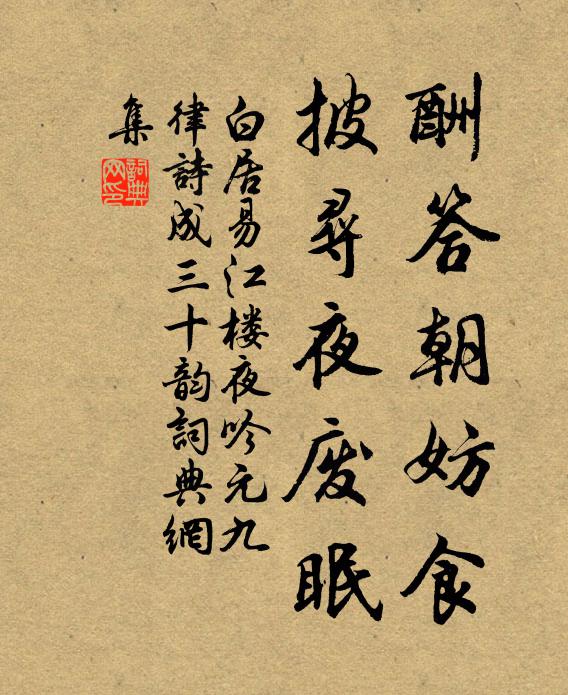 酬答朝妨食
披尋夜废眠
白居易江楼夜吟元九
律詩成三十韵詞典網
集
詞典
网印